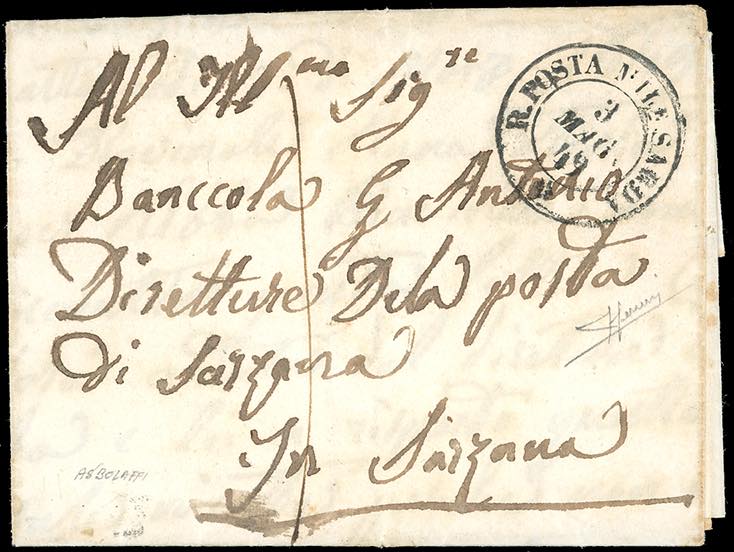 Al Ill.mo Sig.re
Banccola G Antonio
Diretture Dela posta
di Sarzana
In Sarzana
R. POSTA MILE SARDA
3
MAG.
49
AS BOLAFFI